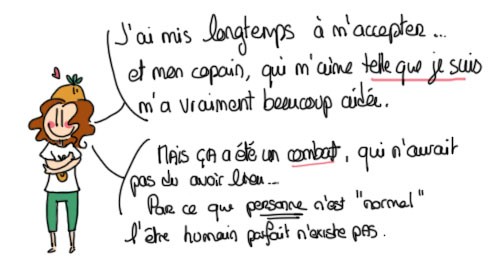 J'ai mis longtemps à m'accepter...
et mon copain, qui m'aime telle que je suis
m'a vraiment beaucoup aidée.
MAIS ÇA a été un combat, qui n'aurait
pas du avoir lieu...
Parce que personne n'est "normal"
l'être humain parfait n'existe PAS.